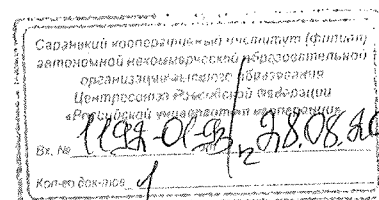 Саранский кооперативный институт (филиал)
автономной некоммерческой образовательной
организации высшего образования
Центросоюза Российской Федерации
«Российский университет кооперации»
Вх. № 1192-01-93/12 28.08.20
Кол-во док-тов 1